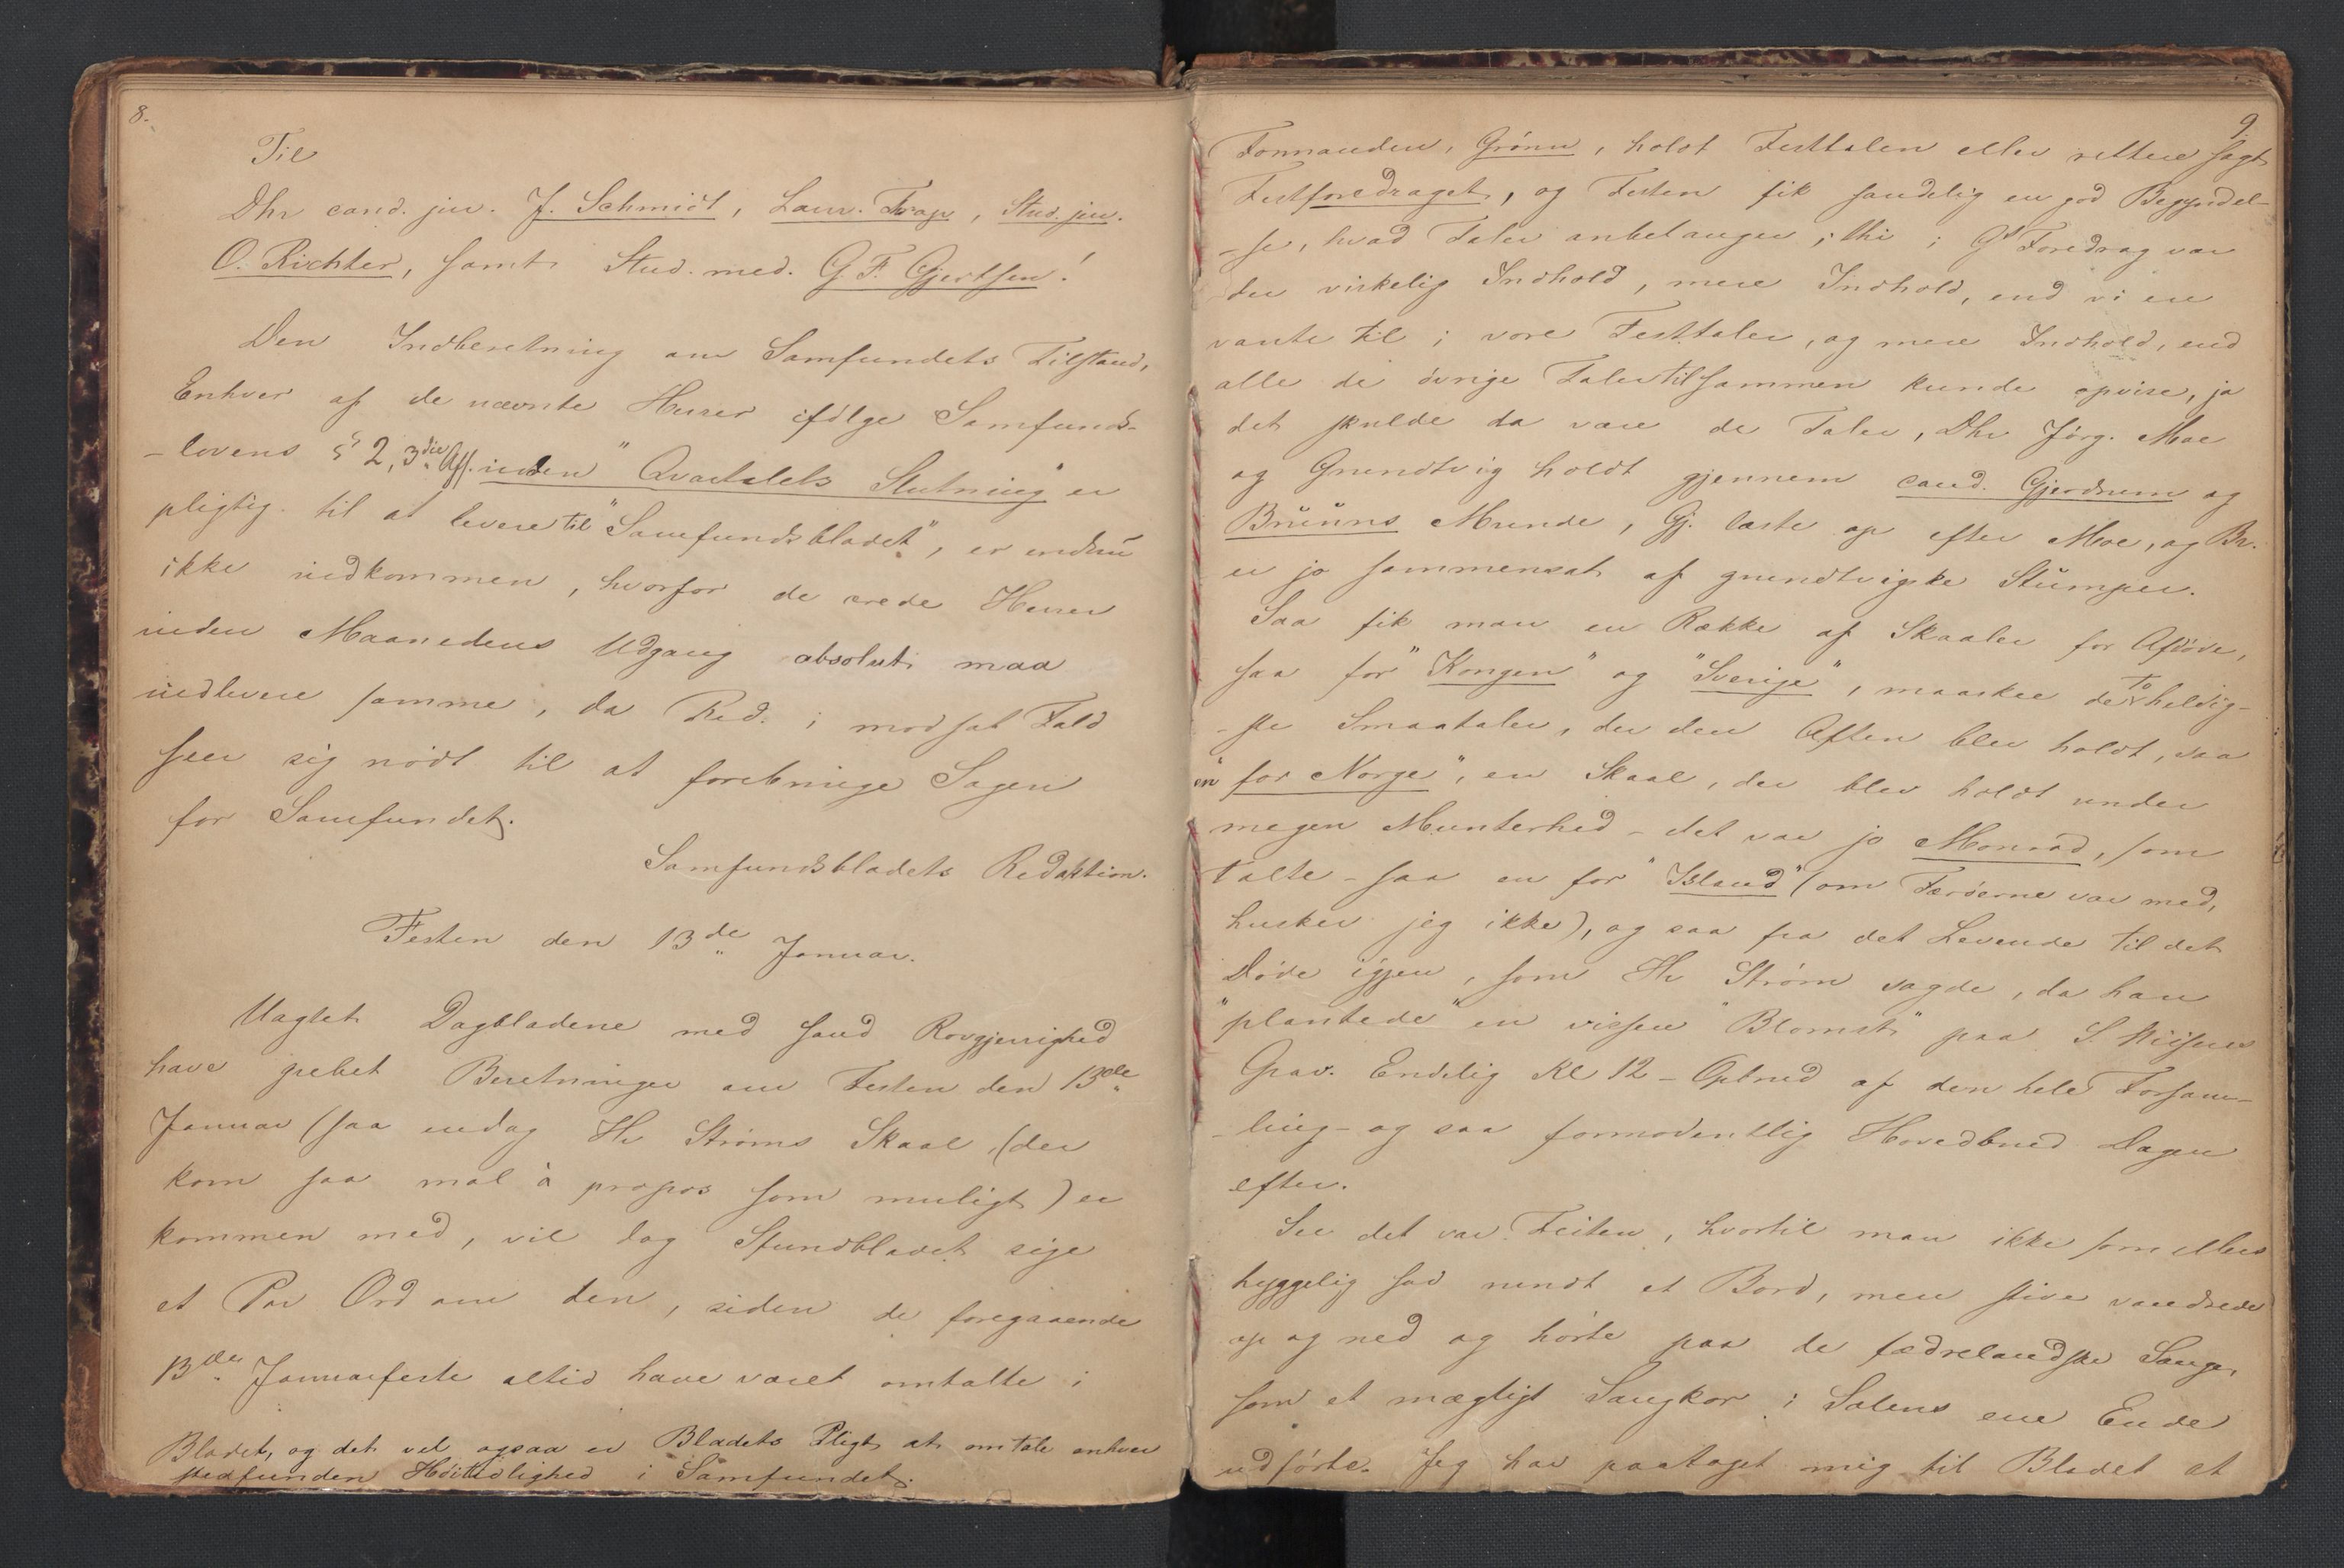 8.
Til
Dhr cand. jur. J. Schmidt, Laur. Trap, Stud. jur.
O. Richter, samt Stud. med. G. F. Gjertsen!
Den Indberetning om Samfundets Tilstand,
Enhver af de nævnte Herrer ifölge Samfunds-
-lovens § 2, 3die Aff. inden "Qvartalets Slutning" er
pligtig til at levere til "Samfundsbladet", er endnu
ikke indkommen, hvorfor de ærede Herrer
inden Maanedens Udgang absolut maa
indlevere samme, da Red. i modsat Fald
seer sig nödt til at forebringe Sagen
for Samfundet.
Samfundsbladets Redaktion.
Festen den 13de Januar.
Uagtet Dagbladene med sand Rovgjerrighed
have grebet Beretninger om Festen den 13de
Januar (saa endog Hr Strøms Skaal, (der
kom saa mal à propos som muligt) er
kommen med, vil dog Sfundbladet sige
et Par Ord om den, siden de foregaaende
13des Januarfeste altid have været omtalte i
Bladet, og det vel ogsaa er Bladets Pligt at omtale enhver
stedfunden Höitidlighed i Samfundet.
9
Formanden, Grönn, holdt Festtalen eller rettere sagt
Festforedraget, og Festen fik sandelig en god Begyndel-
-se, hvad Taler anbelanger; thi i Gs Foredrag var
der virkelig Indhold, mere Indhold, end vi ere
vante til i vore Festtaler, og mere Indhold, end
alle de övrige Taler tilsammen kunde opvise, ja
det skulde da være de Taler, Dhr Jörg. Moe
og Grundtvig holdt gjennem cand. Gjerdrum og
Bruuns Munde, Gj. læste op efter Moe, og Br.
er jo sammensat af grundtvigske Stumper.
Saa fik man en Række af Skaaler for Afdöde,
saa for "Kongen" og "Sverige", maaskee de to heldig-
-ste Smaataler, der den Aften blev holdt, saa
en "for Norge", en Skaal, der blev holdt under
megen Munterhed - det var jo Monrad, som
talte - saa en for "Island" (om Færöerne var med,
husker jeg ikke), og saa fra det Levende til det
Döde igjen, som Hr Strøm sagde, da han
"plantede" en vissen "Blomst" paa S.
Grav. Endelig Kl 12 - Opbrud af den hele Forsam-
-ling - og saa formodentlig Hovedbrud Dagen
efter.
See det var Festen, hvortil man ikke som ellers
hyggelig sad rundt et Bord, men stive vandrede
op og ned og hörte paa de fædrelandske Sange,
som et mægtigt Sangkor i Salens ene Ende
udförte. Jeg har paataget mig til Bladet at